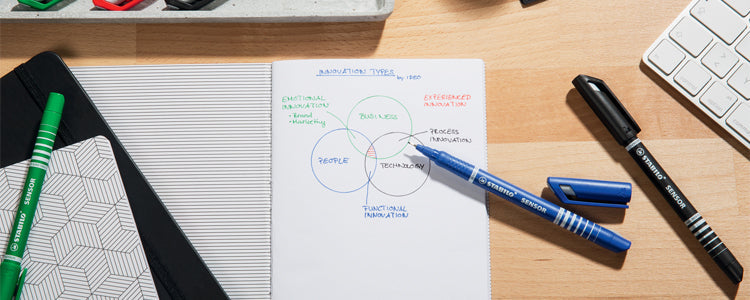 INNOVATION TYPES
by IDEO
EMOTIONAL
INNOVATION
• Brand
• Marketing
EXPERIENCED
INNOVATION
BUSINESS
PROCESS
INNOVATION
PEOPLE
TECHNOLOGY
FUNCTIONAL
INNOVATION
STABILO SENSOR
STABILO SENSOR
STABILO SENSOR